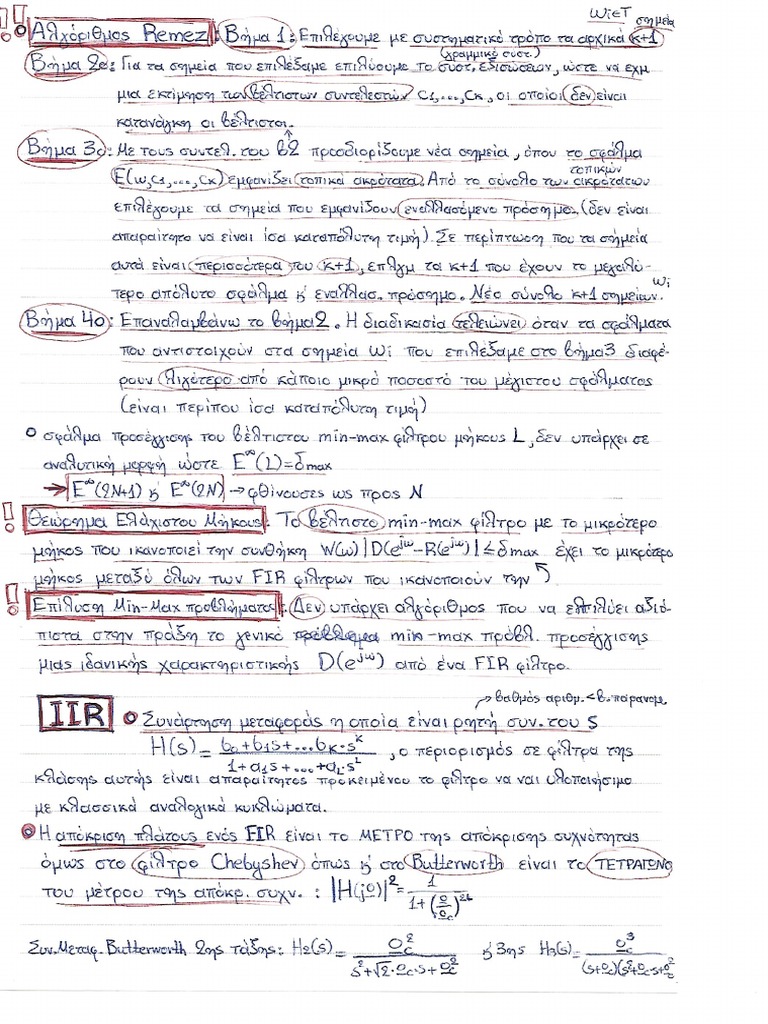 ωi∈T σημεία
!! Αλγόριθμος Remez: Βήμα 1: Επιλέγουμε με συστηματικό τρόπο τα αρχικά κ+1
(γραμμικό συστ.)
Βήμα 2ο: Για τα σημεία που επιλέξαμε επιλύουμε το συστ. εξισώσεων, ώστε να έχμ
μια εκτίμηση των βέλτιστων συντελεστών c1,...,cκ, οι οποίοι δεν είναι
κατανάγκη οι βέλτιστοι.
Βήμα 3ο: Με τους συντελ. του β2 προσδιορίζουμε νέα σημεία, όπου το σφάλμα
E(ω,c1,...,cκ) εμφανίζει τοπικά ακρότατα. Από το σύνολο των τοπικών ακροτάτων
επιλέγουμε τα σημεία που εμφανίζουν εναλλασόμενο πρόσημο. (δεν είναι
απαραίτητο να είναι ίσα καταπόλυτη τιμή). Σε περίπτωση που τα σημεία
αυτά είναι περισσότερα του κ+1, επιλγμ τα κ+1 που έχουν το μεγαλύ-
τερο απόλυτο σφάλμα κ' εναλλασ. πρόσημο. Νέο σύνολο κ+1 σημείων. ωi
Βήμα 4ο: Επαναλαμβάνω το βήμα 2. Η διαδικασία τελειώνει όταν τα σφάλματα
που αντιστοιχούν στα σημεία ωi που επιλέξαμε στο βήμα 3 διαφέ-
ρουν λιγότερο από κάποιο μικρό ποσοστό του μέγιστου σφάλματος
(είναι περίπου ίσα καταπόλυτη τιμή)
ο σφάλμα προσέγγισης του βέλτιστου min-max φίλτρου μήκους L, δεν υπάρχει σε
αναλυτική μορφή ώστε E^∞(L)=δmax
→ E^∞(2N+1) κ' E^∞(2N) → φθίνουσες ως προς N
! Θεώρημα Ελάχιστου Μήκους: Το βέλτιστο min-max φίλτρο με το μικρότερο
μήκος που ικανοποιεί την συνθήκη W(ω)|D(e^jω-R(e^jω)|≤δmax έχει το μικρότερο
μήκος μεταξύ όλων των FIR φίλτρων που ικανοποιούν την ↖
! Επίλυση Min-Max προβλήματος: Δεν υπάρχει αλγόριθμος που να επιλύει αξιό-
πιστα στην πράξη το γενικό min-max πρόβλ. προσέγγισης
μιας ιδανικής χαρακτηριστικής D(e^jω) από ένα FIR φίλτρο.
→ βαθμός αριθμ. < β. παρανομ.
IIR ο Συνάρτηση μεταφοράς η οποία είναι ρητή συν. του S
H(s) = (b0+b1s+...bκ·s^κ)/(1+a1s+...+aL·s^L), ο περιορισμός σε φίλτρα της
κλάσης αυτής είναι απαραίτητος προκειμένου το φίλτρο να ναι υλοποιήσιμο
με κλασσικά αναλογικά κυκλώματα.
ο Η απόκριση πλάτους ενός FIR είναι το ΜΕΤΡΟ της απόκρισης συχνότητας
όμως στο φίλτρο Chebyshev όπως κ' στο Butterworth είναι το ΤΕΤΡΑΓΩΝΟ
του μέτρου της απόκρ. συχν. : |H(jΩ)|^2 = 1/(1+(Ω/Ωc)^2L)
Συν. Μεταφ. Butterworth 2ης τάξης: H2(s) = Ωc^2/(s^2+√2·Ωc·s+Ωc^2) κ' 3ης H3(s) = Ωc^3/((s+Ωc)(s^2+Ωc·s+Ωc^2)